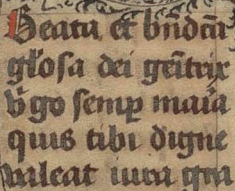 Beata et bn̄dcā
gl'osa dei gen̄trix
v̄go semp̄ maīa
quis tibi digne
valeat iura gr̄a